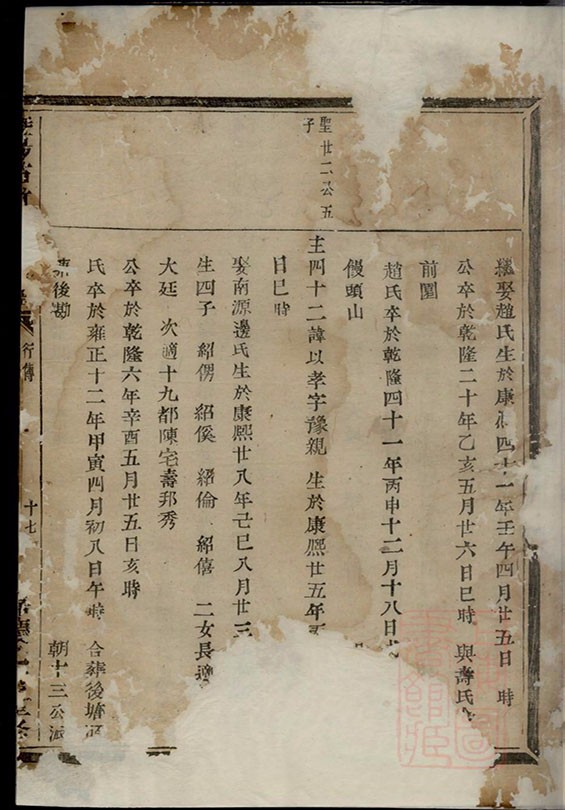 繼娶趙氏生於康熙四十一年壬午四月廿五日 時
公卒於乾隆二十年乙亥五月廿六日巳時 與壽氏
前園
趙氏卒於乾隆四十一年丙申十二月十八日
饅頭山
聖廿二公五
子
主四十二諱以孝字豫親 生於康熙廿五年
日巳時
娶南源邊氏生於康熙廿八年己巳八月廿三
生四子 紹僗 紹傒 紹倫 紹僖 二女長適
大廷 次適十九都陳宅壽邦秀
公卒於乾隆六年辛酉五月廿五日亥時
氏卒於雍正十二年甲寅四月初八日午時 合葬後塘
後勘 朝十三公派
行傳
十七